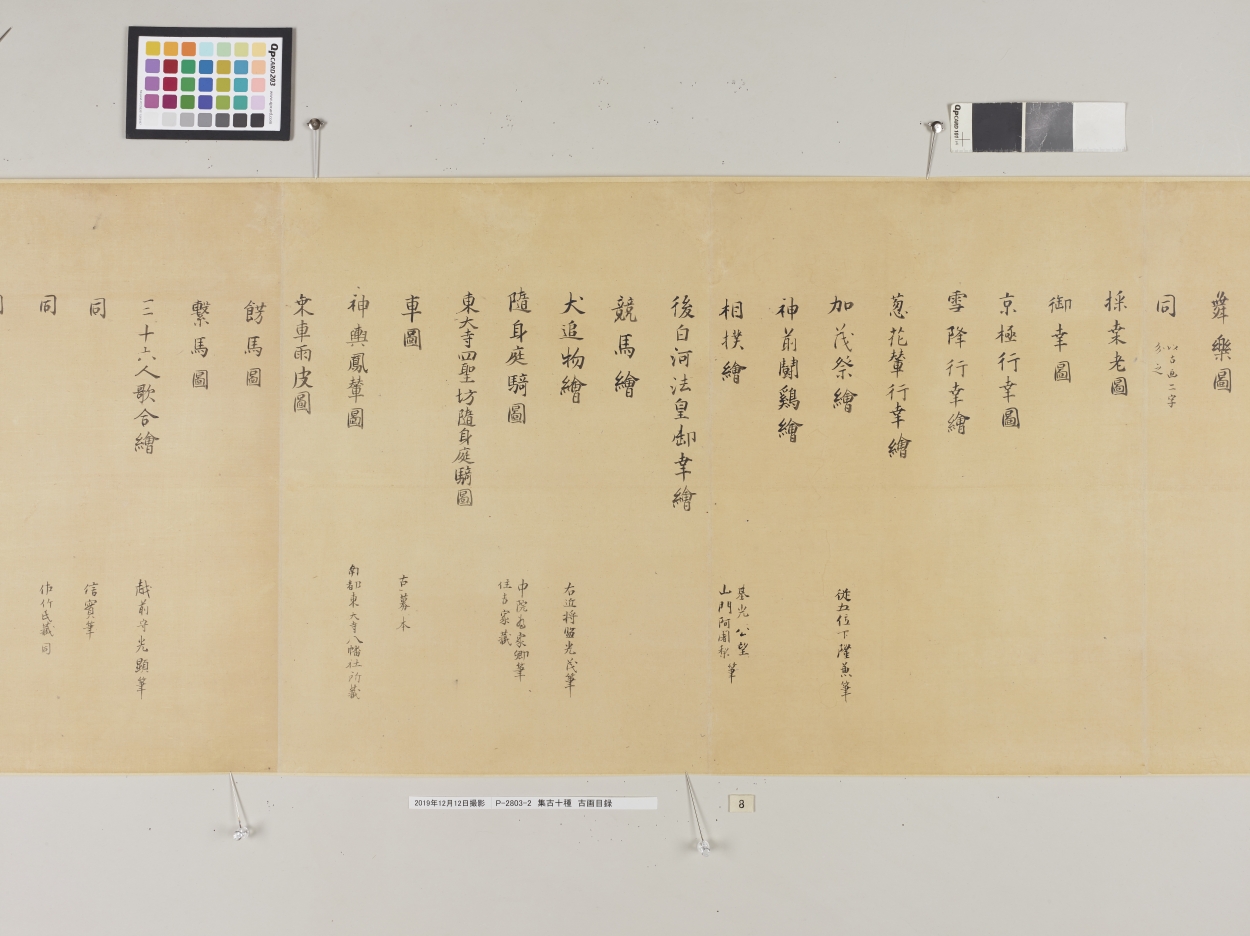 舞樂圖
同
採桒老圖
御幸圖
京極行幸圖
雪降行幸繪
葱花輦行幸繪
加茂祭繪
從五位下隆兼筆
神前鬪鷄繪
相撲繪
基光 公望
山門阿闍梨 筆
後白河法皇御幸繪
競馬繪
犬追物繪
右近將監光茂筆
隨身庭騎圖
中院為家卿筆
住吉家藏
東大寺四聖坊隨身庭騎圖
車圖
古摹本
神輿鳳輦圖
南都東大寺八幡社所藏
乗車雨皮圖
餝馬圖
繋馬圖
三十六人歌合繪
越前守光顯筆
同
信實筆
同
佐竹氏藏 同
QPCARD 203
QPCARD 101
2019年12月12日撮影 P-2803-2 集古十種 古画目録
8